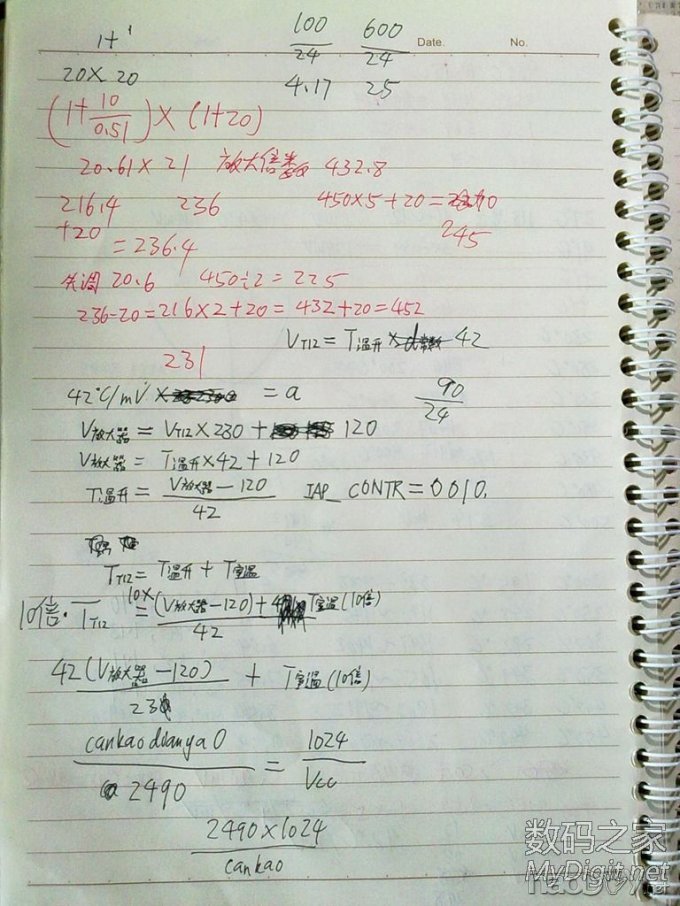 1+1
100/24 600/24 Date. No.
20×20 4.17 25
(1+10/0.51)×(1+20)
20.61×21 放大倍数 432.8
216.4 236 450×5+20=
+20 =236.4 245
失调20.6 450÷2=225
236-20=216×2+20=432+20=452
VT12=T温升×42
231
42℃/mV =a 90/24
V放大器=VT12×230+120
V放大器=T温升×42+120
T温升=(V放大器-120)/42 IAP_CONTR=0010.
TT12=T温升+T室温
10倍·TT12=10×(V放大器-120)+T室温(10倍)/42
42(V放大器-120)/23 + T室温(10倍)
cankaodianya0/2490=1024/Vcc
2490×1024/cankao
数码之家
MyDigit.net